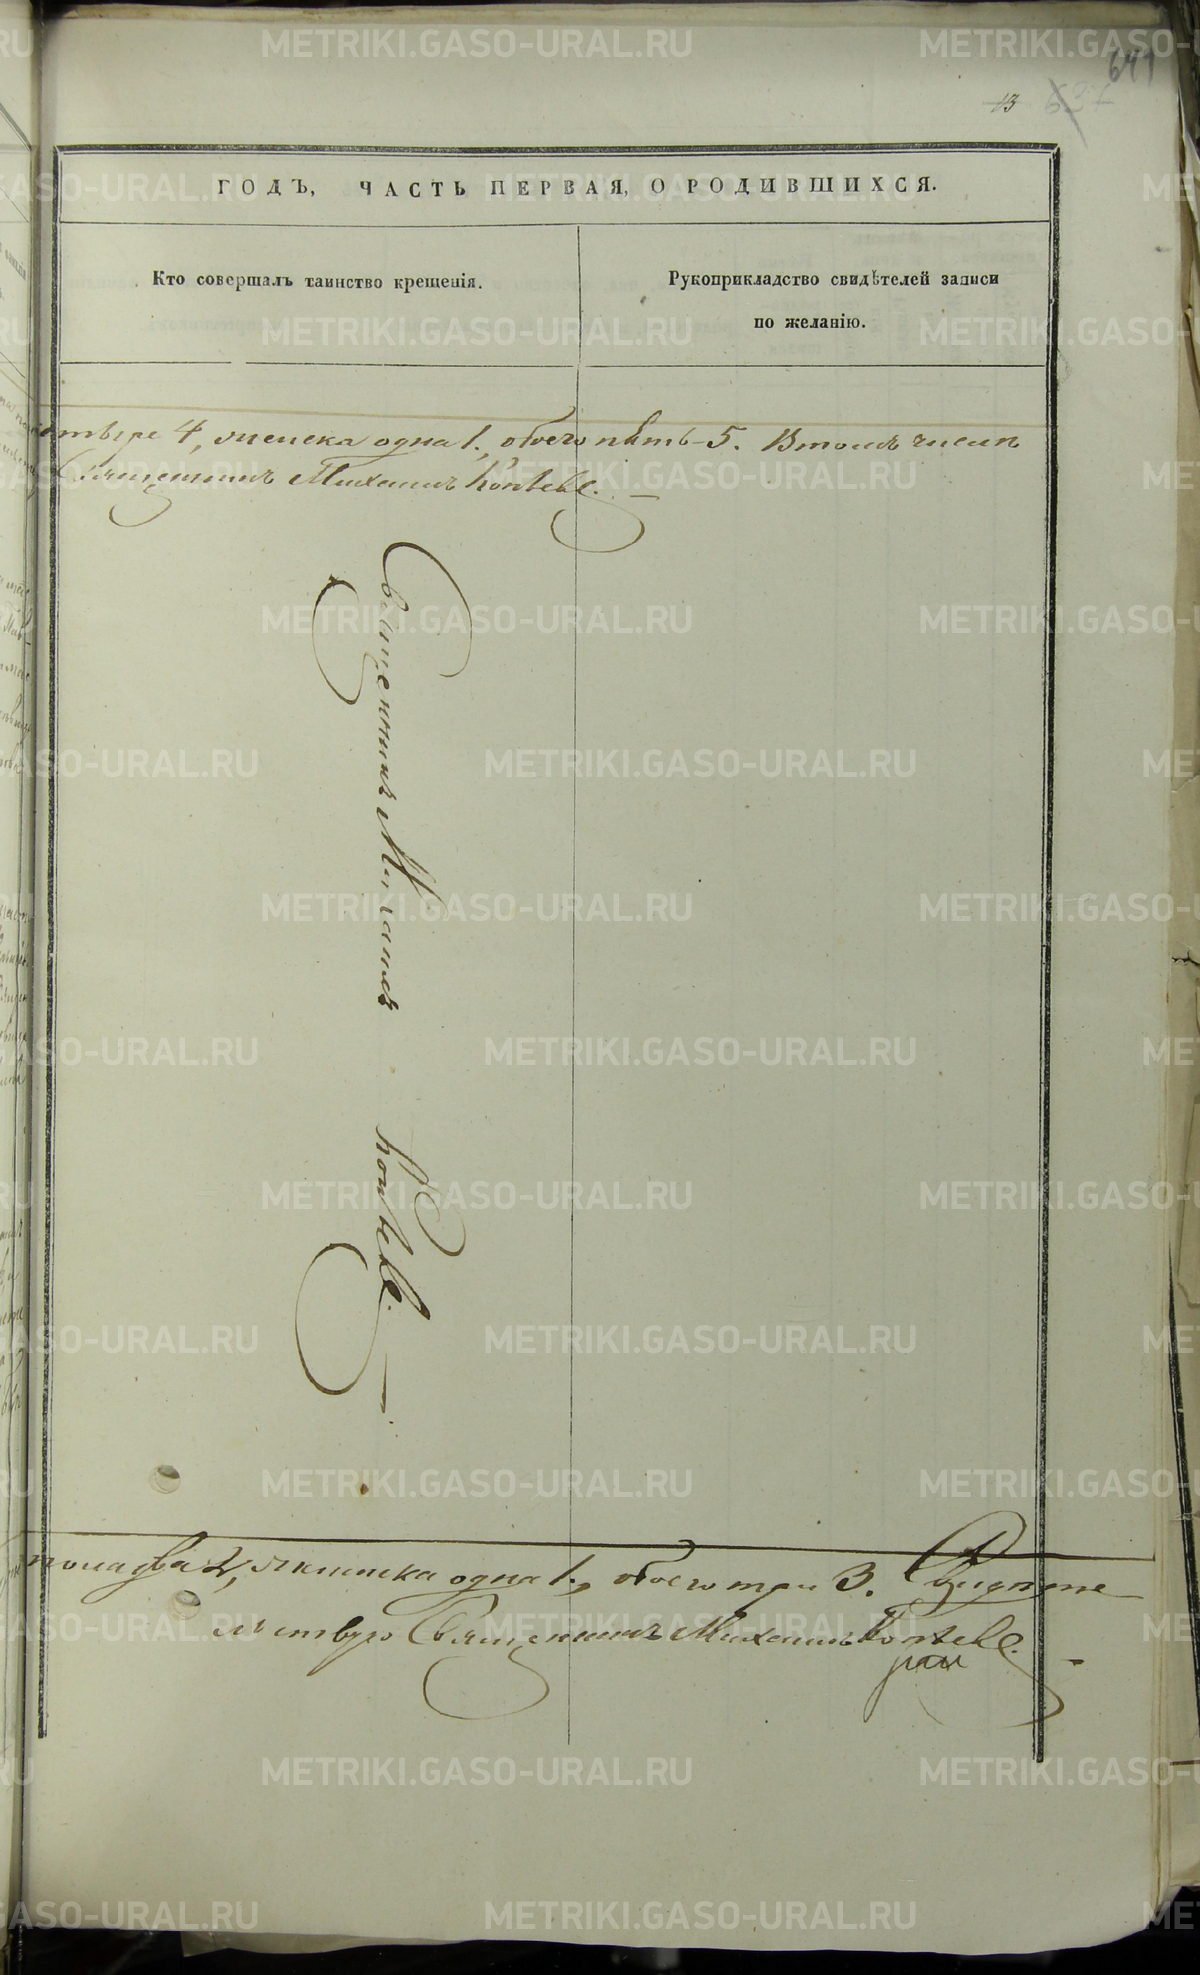 641
13 637
ГОДЪ, ЧАСТЬ ПЕРВАЯ, О РОДИВШИХСЯ.
Кто совершалъ таинство крещенія.
Рукоприкладство свидѣтелей записи
по желанію.
четыре 4, женска одна 1., обоего пять-5. Въ томъ числѣ
Священникъ Михаилъ
Священникъ Михаилъ
пола два 2, женска одна 1., обоего три 3. Свидѣте
льствую Священникъ Михаилъ
METRIKI.GASO-URAL.RU